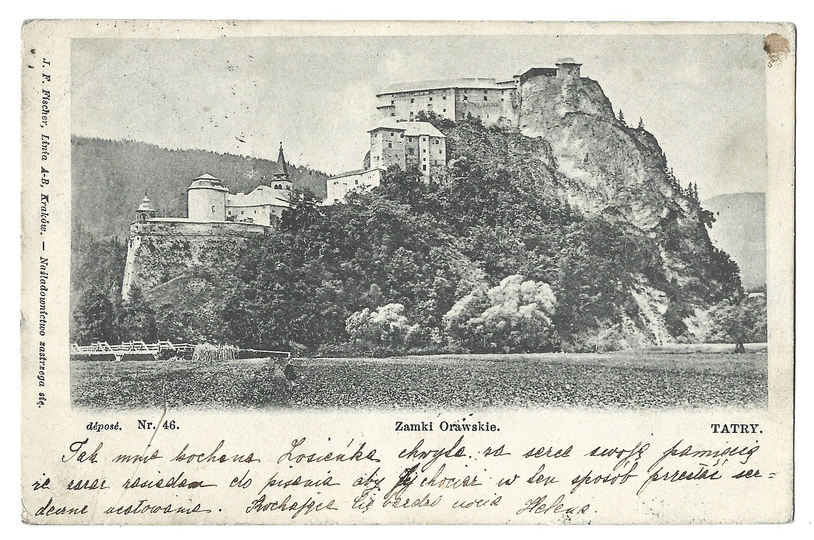 J. F. Fischer, Linia A-B, Kraków. — Naśladownictwo zastrzega się.
déposé. Nr. 46.
Zamki Orawskie.
TATRY.
Tak mnie kochana Zosieńka chwyła za serce swoją pamięcią
że zaraz zasiadam do pisania aby Jej chociaż w ten sposób przesłać ser=
deczne ucałowania. Kochająca Cię bardzo Helena.